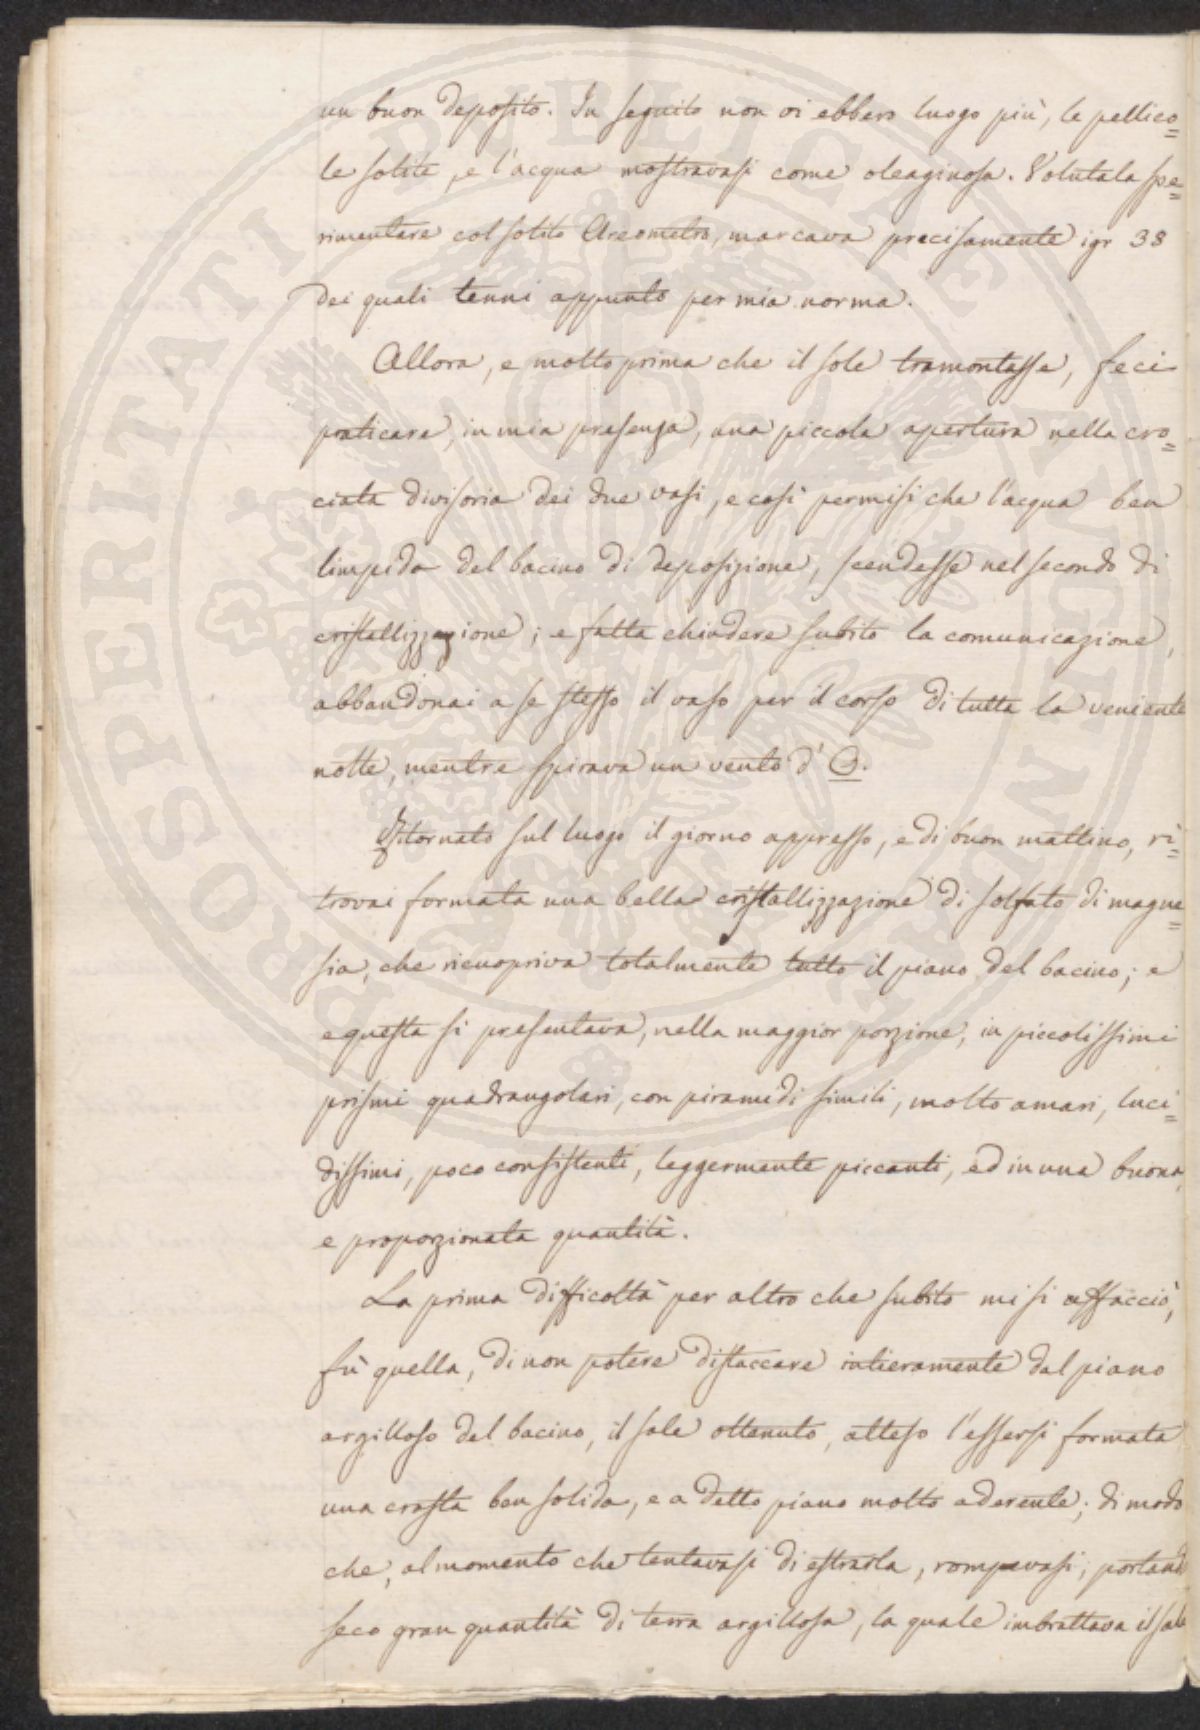 un buon deposito. In seguito non vi ebbero luogo più, le pellico=
le solite, e l'acqua mostravasi come oleaginosa. Volutala spe=
rimentare col solito Areometro, marcava precisamente i gr 38
dei quali tenni appunto per mia norma.
Allora, e molto prima che il sole tramontasse, feci
praticare, in mia presenza, una piccola apertura nella cro=
ciata divisoria dei due vasi, e così permisi che l'acqua ben
limpida del bacino di deposizione, scendesse nel secondo di
cristallizzazione; e fatta chiudere subito la comunicazione,
abbandonai a se stesso il vaso per il corso di tutta la veniente
notte, mentre spirava un vento d' O.
Ritornato sul luogo il giorno appresso, e di buon mattino, ri=
trovai formata una bella cristallizzazione di solfato di magne=
sia, che ricuopriva totalmente tutto il piano del bacino; e
e questa si presentava, nella maggior porzione, in piccolissimi
prismi quadrangolari, con piramidi simili, molto amari, luci=
dissimi, poco consistenti, leggermente piccanti, ed in una buona,
e proporzionata quantità.
La prima difficoltà per altro che subito mi si affacciò,
fù quella, di non potere distaccare intieramente dal piano
argilloso del bacino, il sale ottenuto, atteso l'essersi formata
una crosta ben solida, e a detto piano molto aderente; di modo
che, al momento che tentavasi di estrarla, rompevasi, portando
seco gran quantità di terra argillosa, la quale imbrattava il sale
PROSPERITATI PUBLICAE AUGENDAE